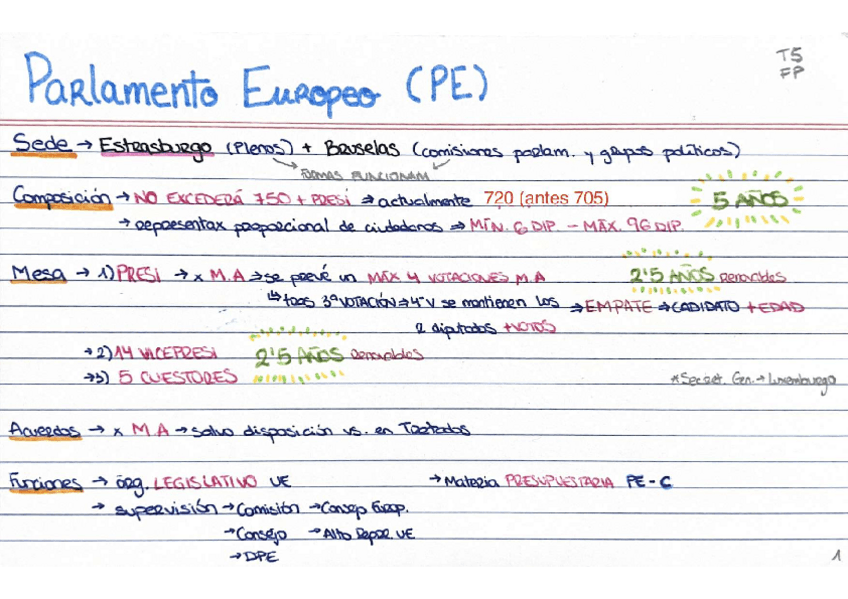 T5
FP
Parlamento Europeo (PE)
Sede → Estrasburgo (Plenos) + Bruselas (comisiones parlam. y grupos políticos)
FORMAS FUNCIONAM.
Composición → NO EXCEDERÁ 750 + PRESI → actualmente 720 (antes 705) 5 AÑOS
→ representax proporcional de ciudadanos ⇒ MÍN. 6 DIP. – MÁX. 96 DIP.
Mesa → 1) PRESI → x M.A → se prevé un MAX 4 VOTACIONES M.A 2'5 AÑOS Renovables
↳ tras 3ª VOTACIÓN → 4ª V se mantienen los ⇒ EMPATE → CADIDATO + EDAD
2 diputados +VOTOS
→ 2) 14 VICEPRESI 2'5 AÑOS Renovables
→ 3) 5 CUESTORES *Secret. Gen. → Luxemburgo
Acuerdos → x M.A → salvo disposición vs. en Tratados
Funciones → órg. LEGISLATIVO UE → Materia PRESUPUESTARIA PE - C
→ supervisión → Comisión → Consejo Europ.
→ Consejo → Alto Repre. UE
→ DPE
1